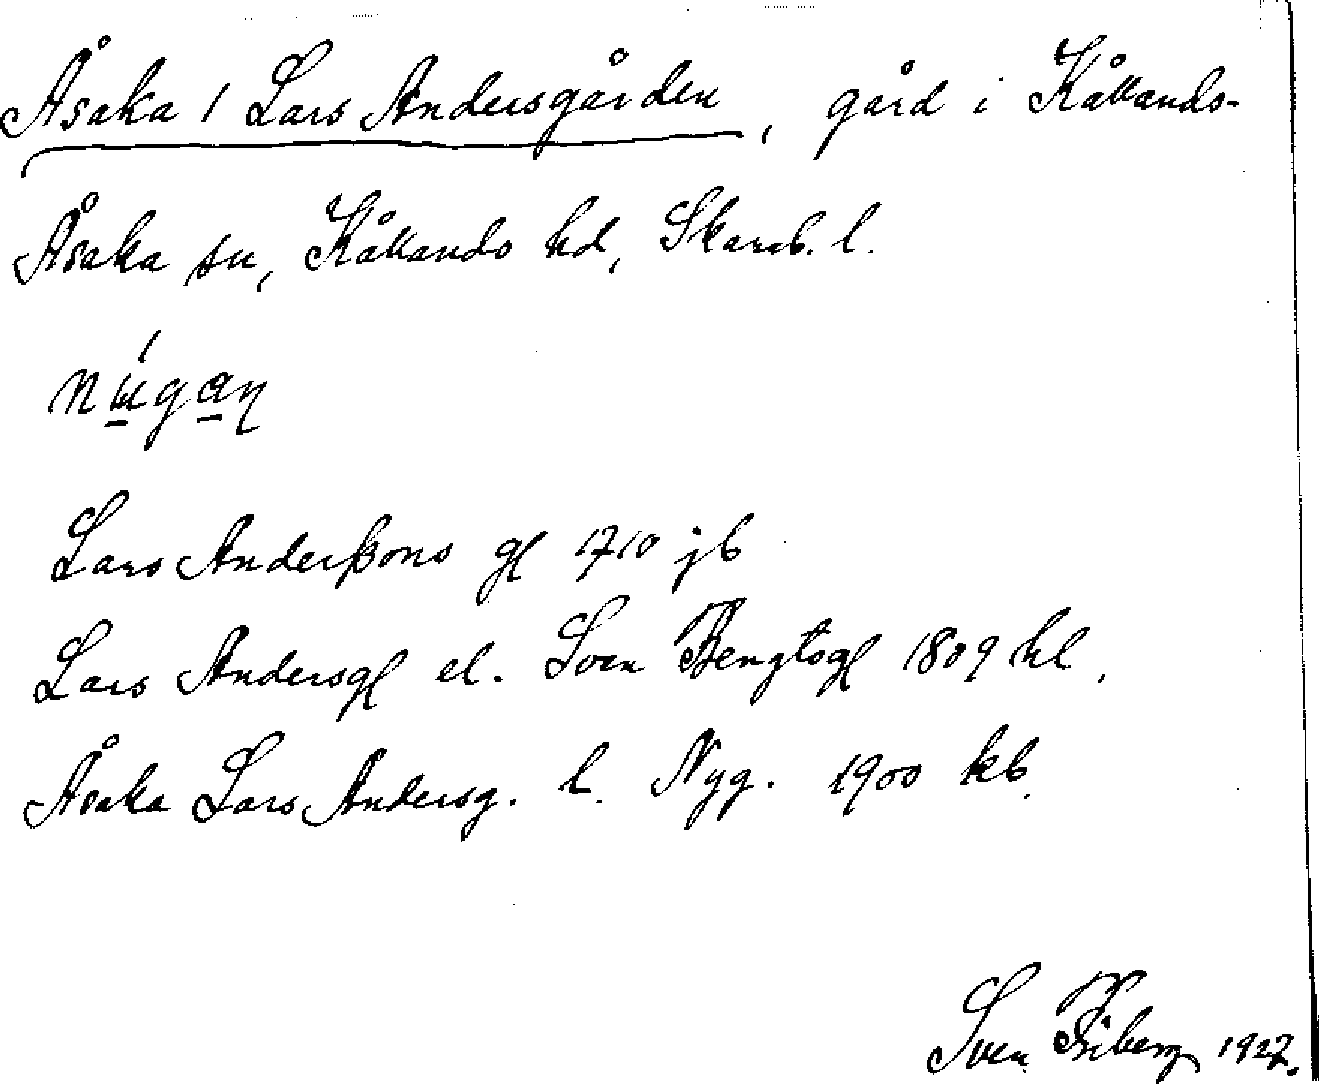 Åsaka 1 Lars Andersgården, gård i Kållands-
Åsaka sn, Kållands hd, Skarab. l.
Lars Anderssons gl 1710 jb
Lars Andersgl el. Sven Bengtsgl 1809 hl.
Åsaka Lars Andersg. l. Nyg. 1900 kb.
Sven Friberg 1927.